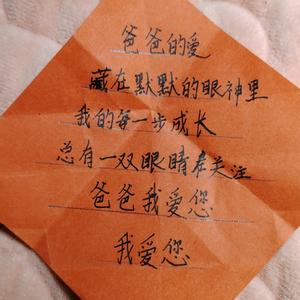 爸爸的爱
藏在默默的眼神里
我的每一步成长
总有一双眼睛在关注
爸爸我爱您
我爱您